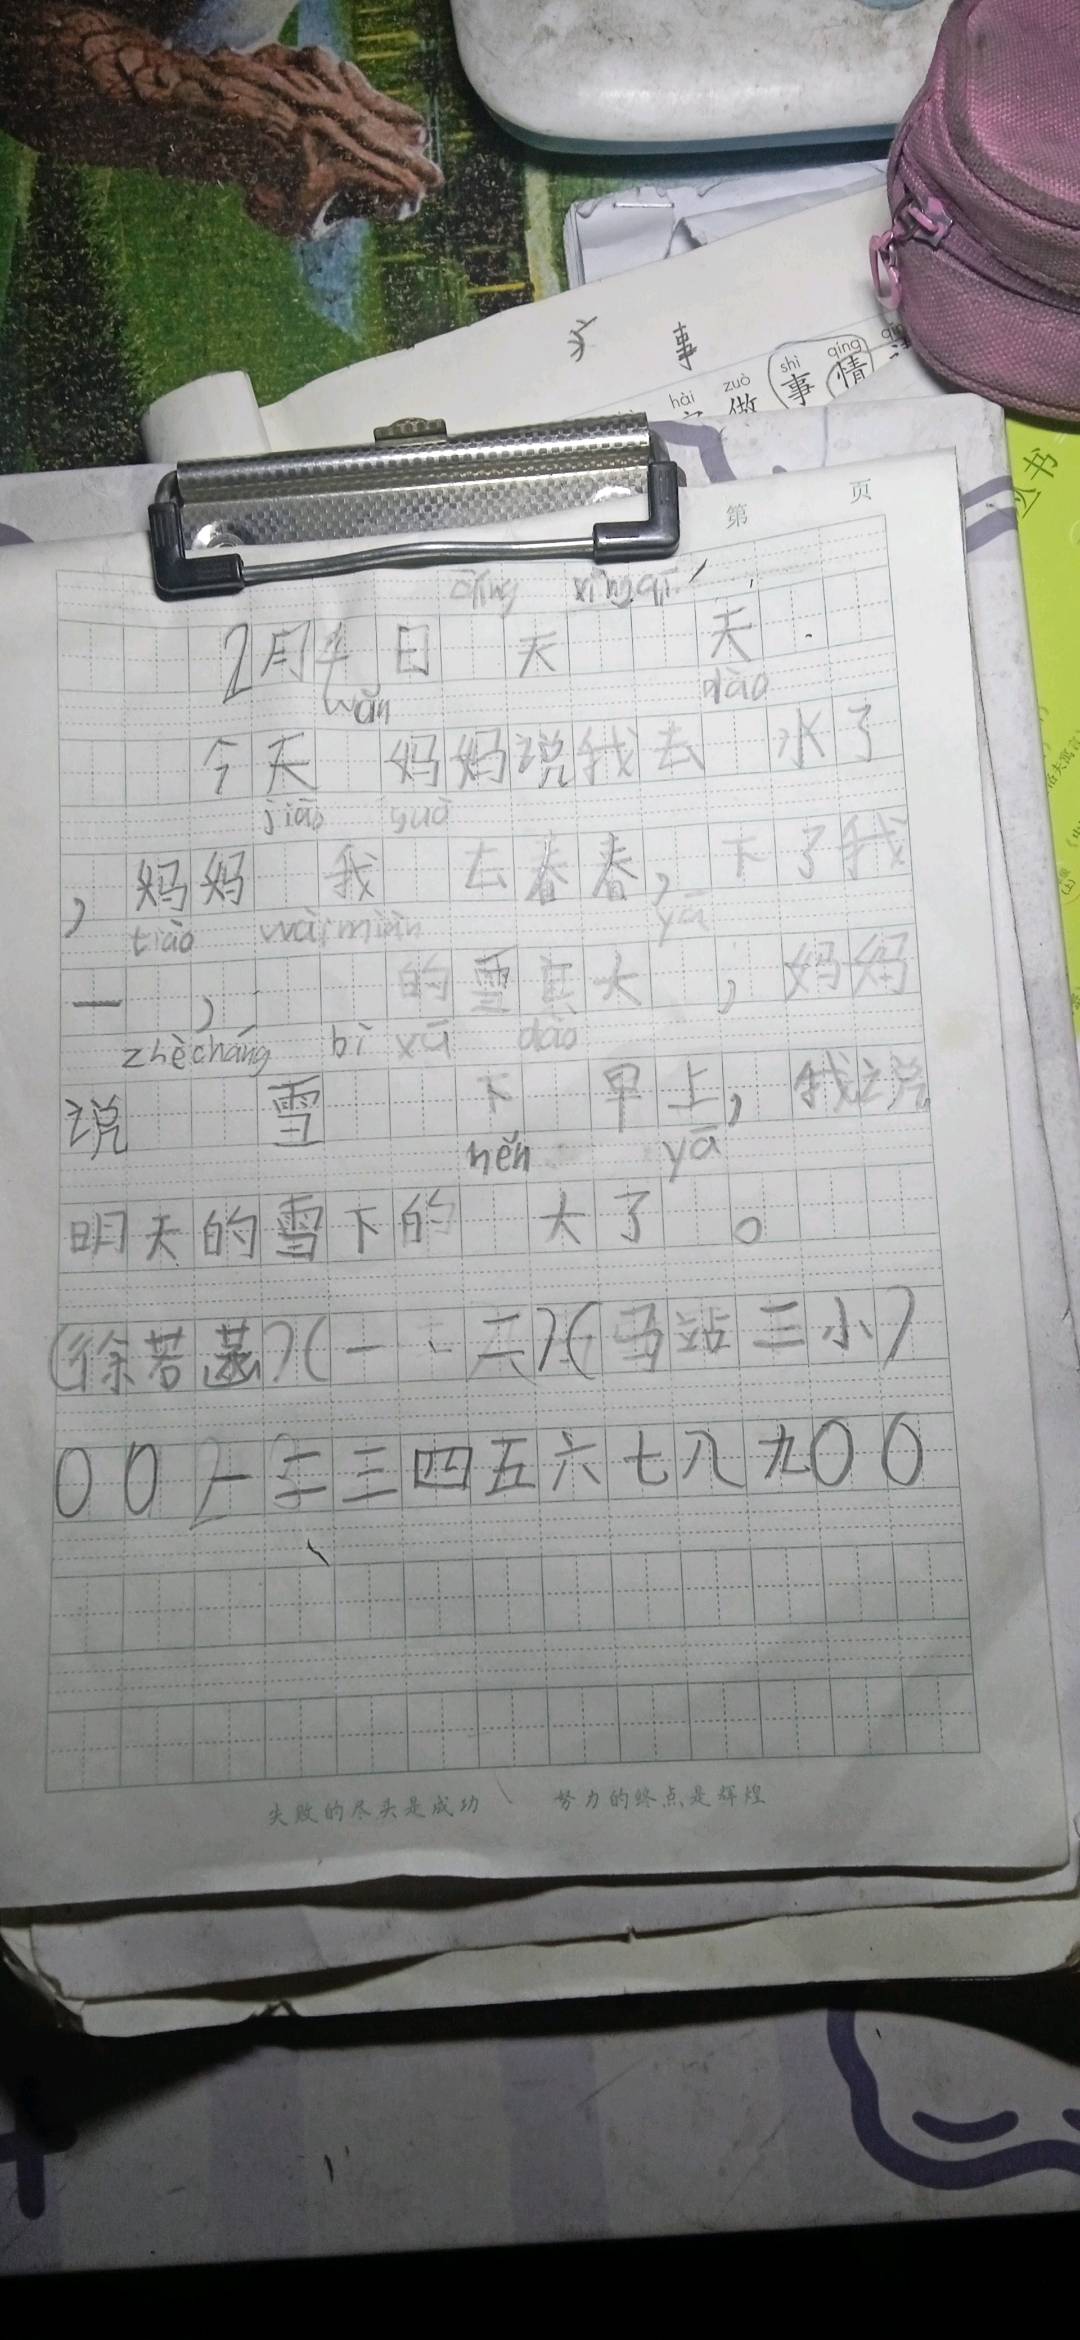 事
shì qíng
hài zuò 事 情
做
书
第 页
qíng xīngqī
2月 日 天 天
wǎn dào
今天 妈妈说我去 水了
jiào guò
，妈妈 我 去春春，下了我
tiào wàimiàn yā
一 ， 的雪真大 ，妈妈
zhècháng bì xū dào
说 雪 下 早上，我说
hěn yā
明天的雪下的 大了 。
(徐若菡)(一 六)(马站三小)
00 一二三四五六七八九00
失败的尽头是成功 努力的终点是辉煌